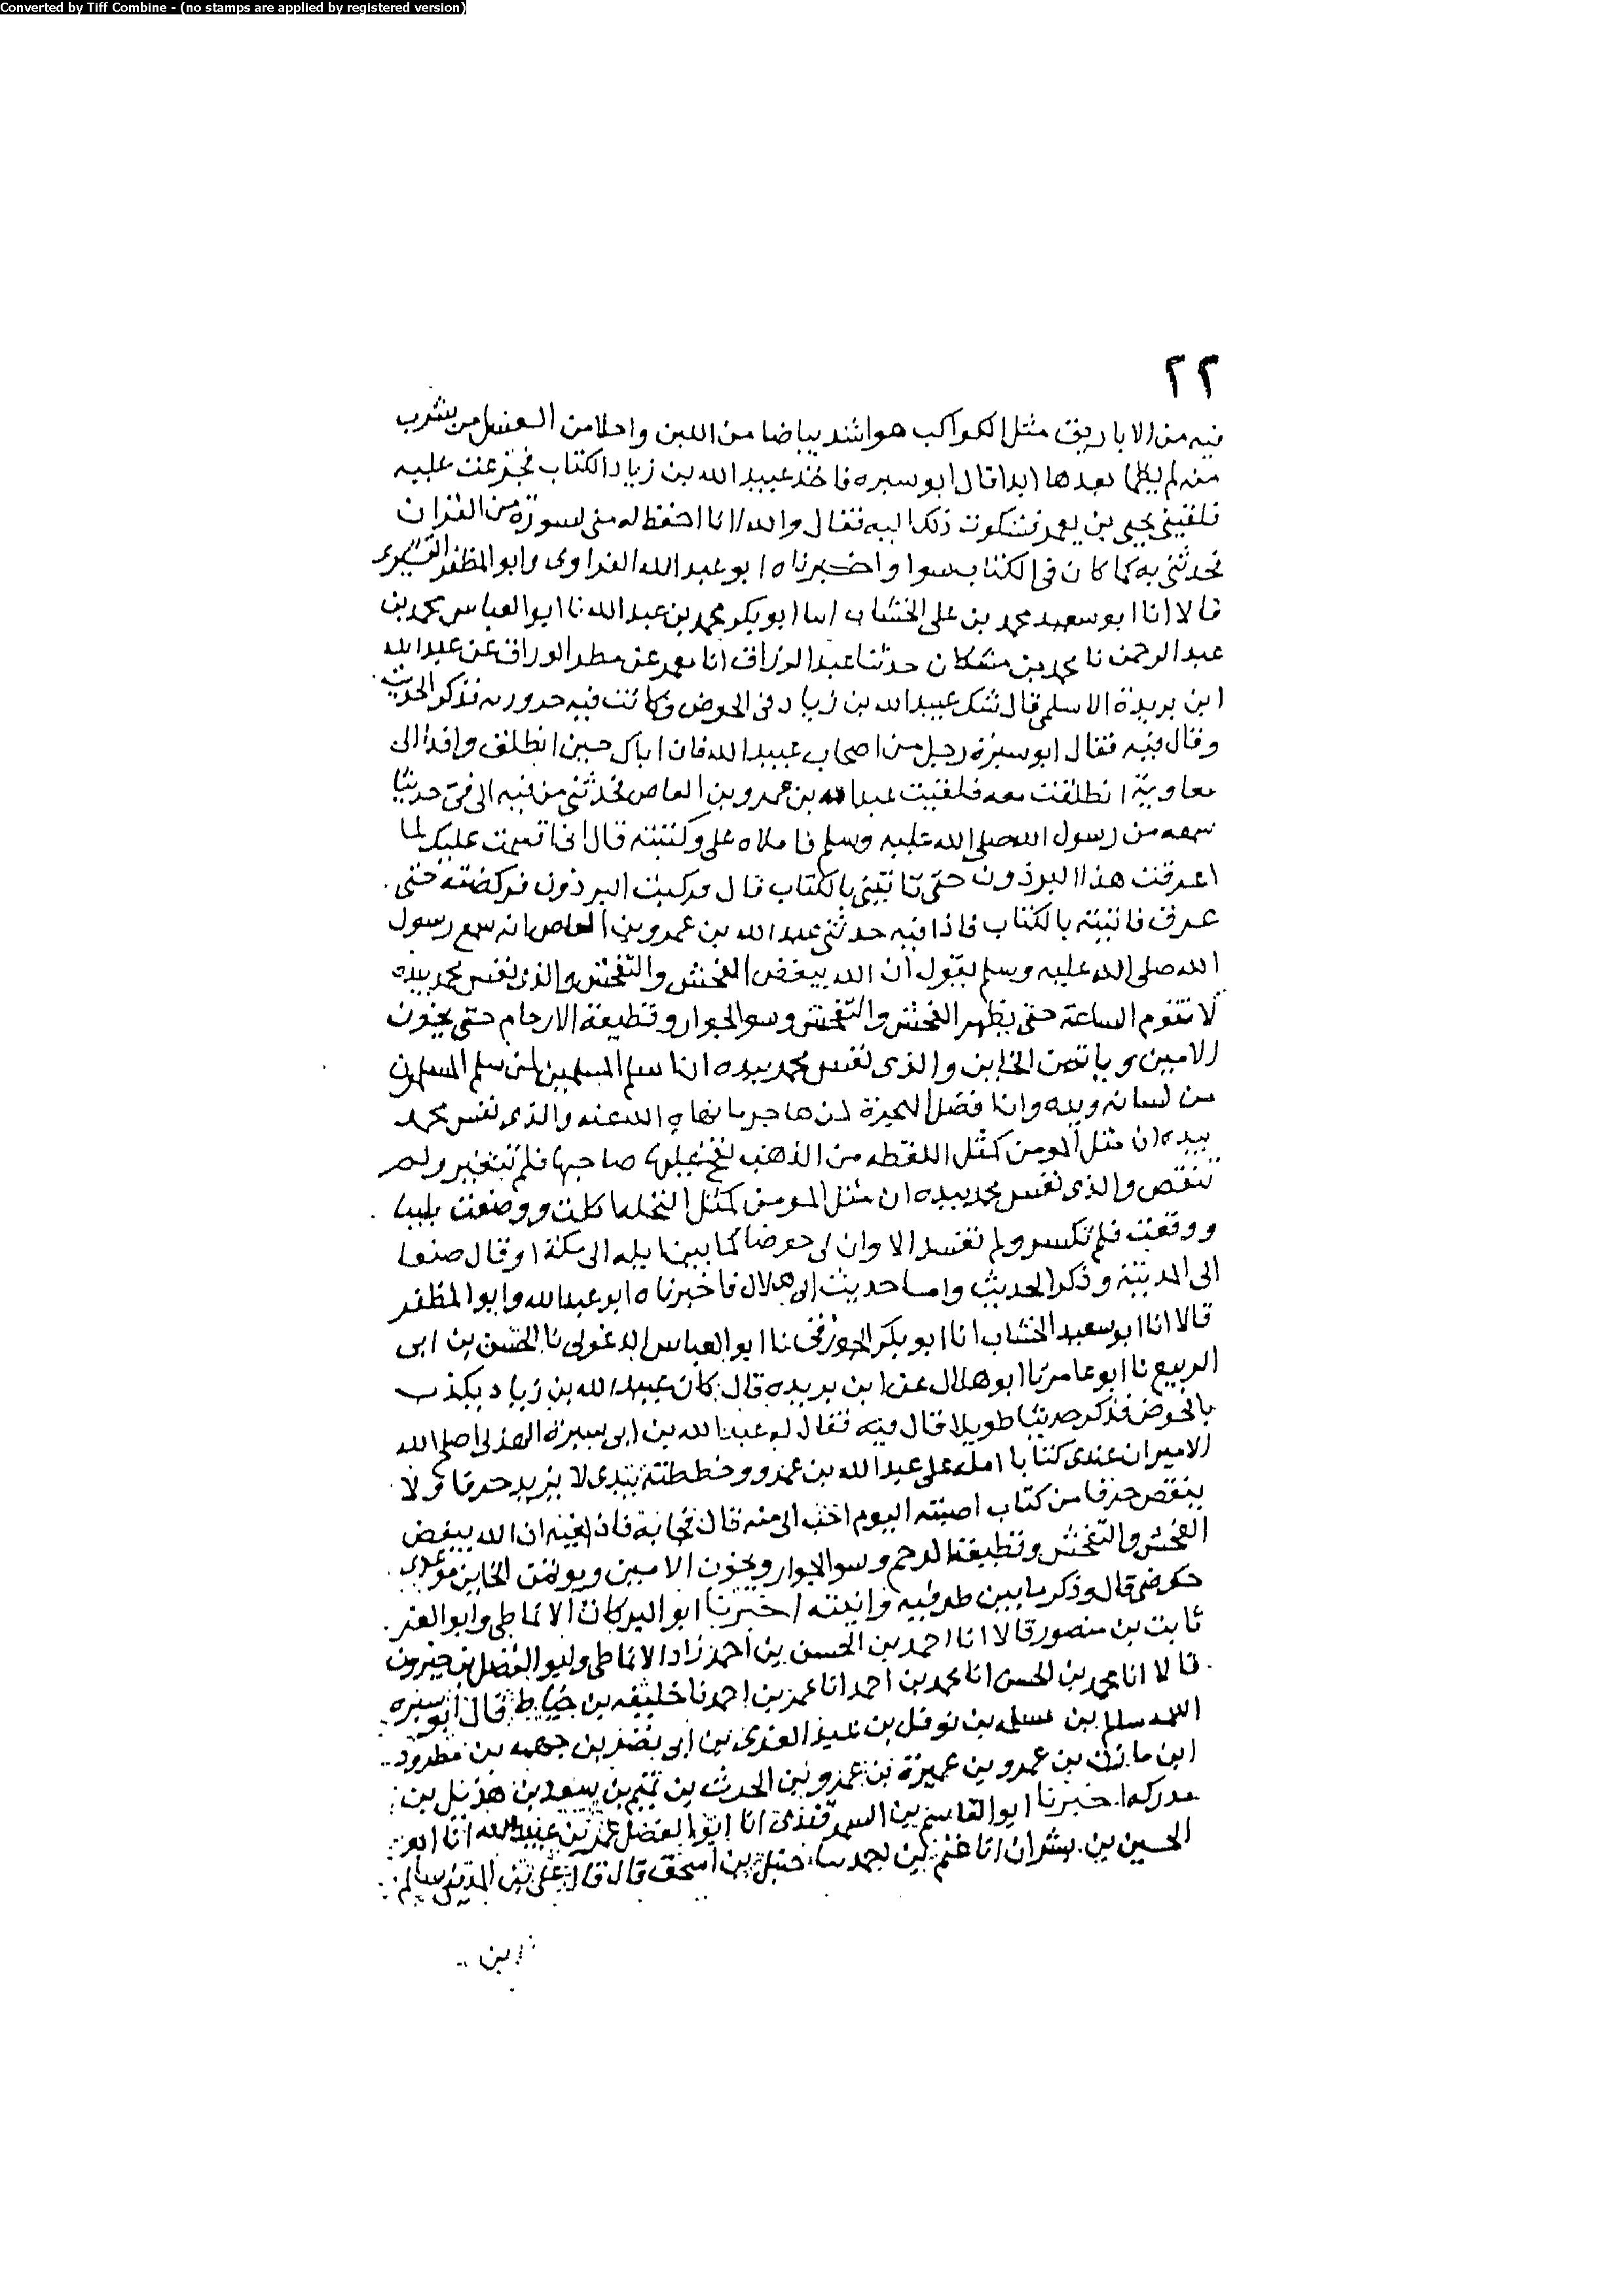 Converted by Tiff Combine - (no stamps are applied by registered version)
٢٢
فيه من الاباريق مثل الكواكب هو اشد بياضا من اللبن واحلا من العسل من يشرب
منه لم يظما بعدها ابدا قال ابو سبره فاخذ عبيد الله بن زياد الكتاب فجزعت عليه
فلقيني يحيى بن يعمر فشكوت ذلك اليه فقال والله لانا احفظ له مني لسورة من القران
فحدثني به كما كان في الكتاب سوا واخبرناه ابو عبد الله الفراوى وابو المظفر القشيرى
قالا انا ابو سعيد محمد بن على الخشاب انا ابو بكر محمد بن عبد الله نا ابو العباس محمد بن
عبد الرحمن نا محمد بن مشكان حدثنا عبد الرزاق انا معمر عن مطر الوراق عن عبد الله
ابن بريدة الاسلمى قال شك عبيد الله بن زياد فى الحوض وكانت فيه حروريه فذكر الحديث
وقال فيه فقال ابو سبرة رجل من اصحاب عبيد الله فان اباك حين انطلق وافدا الى
معاوية انطلقت معه فلقيت عبد الله بن عمرو بن العاص فحدثني من فيه الى في حديثا
سمعه من رسول الله صلى الله عليه وسلم فاملاه على وكتبته قال انى اقسمت عليك لما
اعرقت هذا البرذون حتى تاتينى بالكتاب قال فركبت البرذون فركضته حتى
عرق فاتيته بالكتاب فاذا فيه حدثني عبد الله بن عمرو بن العاص انه سمع رسول
الله صلى الله عليه وسلم يقول ان الله يبغض الفحش والتفحش والذى نفس محمد بيده
لا تقوم الساعة حتى يظهر الفحش والتفحش وسو الجوار وقطيعة الارحام حتى يخون
الامين وياتمن الخاين والذى نفس محمد بيده ان اسلم المسلمين لمن سلم المسلمون
من لسانه ويده وان افضل الهجرة لمن هاجر ما نهاه الله عنه والذى نفس محمد
بيده ان مثل المومن كمثل القطعه من الذهب نفخ عليها صاحبها فلم تتغير ولم
تنقص والذى نفس محمد بيده ان مثل المومن كمثل النخله اكلت ووضعت طيبا
ووقعت فلم تكسر ولم تفسد الا وان لى حوضا كما بين ايله الى مكة او قال صنعا
الى المدينة وذكر الحديث واما حديث ابى هلال فاخبرناه ابو عبد الله وابو المظفر
قالا انا ابو سعيد الخشاب انا ابو بكر الجوزقى نا ابو العباس الدغولى نا الحسن بن ابى
الربيع نا ابو عامر نا ابو هلال عن ابن بريده قال كان عبيد الله بن زياد يكذب
بالحوض فذكر حديثا طويلا قال فيه فقال له عبد الله بن ابى سبرة الهذلى اصلح الله
الامير ان عندى كتابا املاه على عبد الله بن عمرو وخططته بيدى لا يزيد حرفا ولا
ينقص حرفا من كتاب اصبته اليوم احب الى منه قال فجا به فاذا فيه ان الله يبغض
الفحش والتفحش وقطيعة الرحم وسو الجوار ويخون الامين ويوتمن الخاين موعدى
حوضى قال وذكر ما بين طرفيه وانيته اخبرنا ابو البركات الانماطى وابو العز
ثابت بن منصور قالا انا احمد بن الحسن بن احمد زاد الانماطى وابو الفضل بن خيرون
قالا انا محمد بن الحسن انا محمد بن احمد انا عمر بن احمد نا خليفه بن خياط قال ابو سبره
سلم بن مسلمه بن نوفل بن بن ابى نصر بن جهمه بن مطرود
ابن مازن بن عمرو بن عميرة بن عمرو بن الحرث بن تميم بن سعد بن هذيل بن
مدركه اخبرنا ابو القاسم بن السمرقندى انا ابو الفضل عمر بن عبيد الله انا ابو
الحسين بن بشران انا عثمن بن احمد نا حنبل بن اسحق قال قال على بن المدينى سالم
ابن